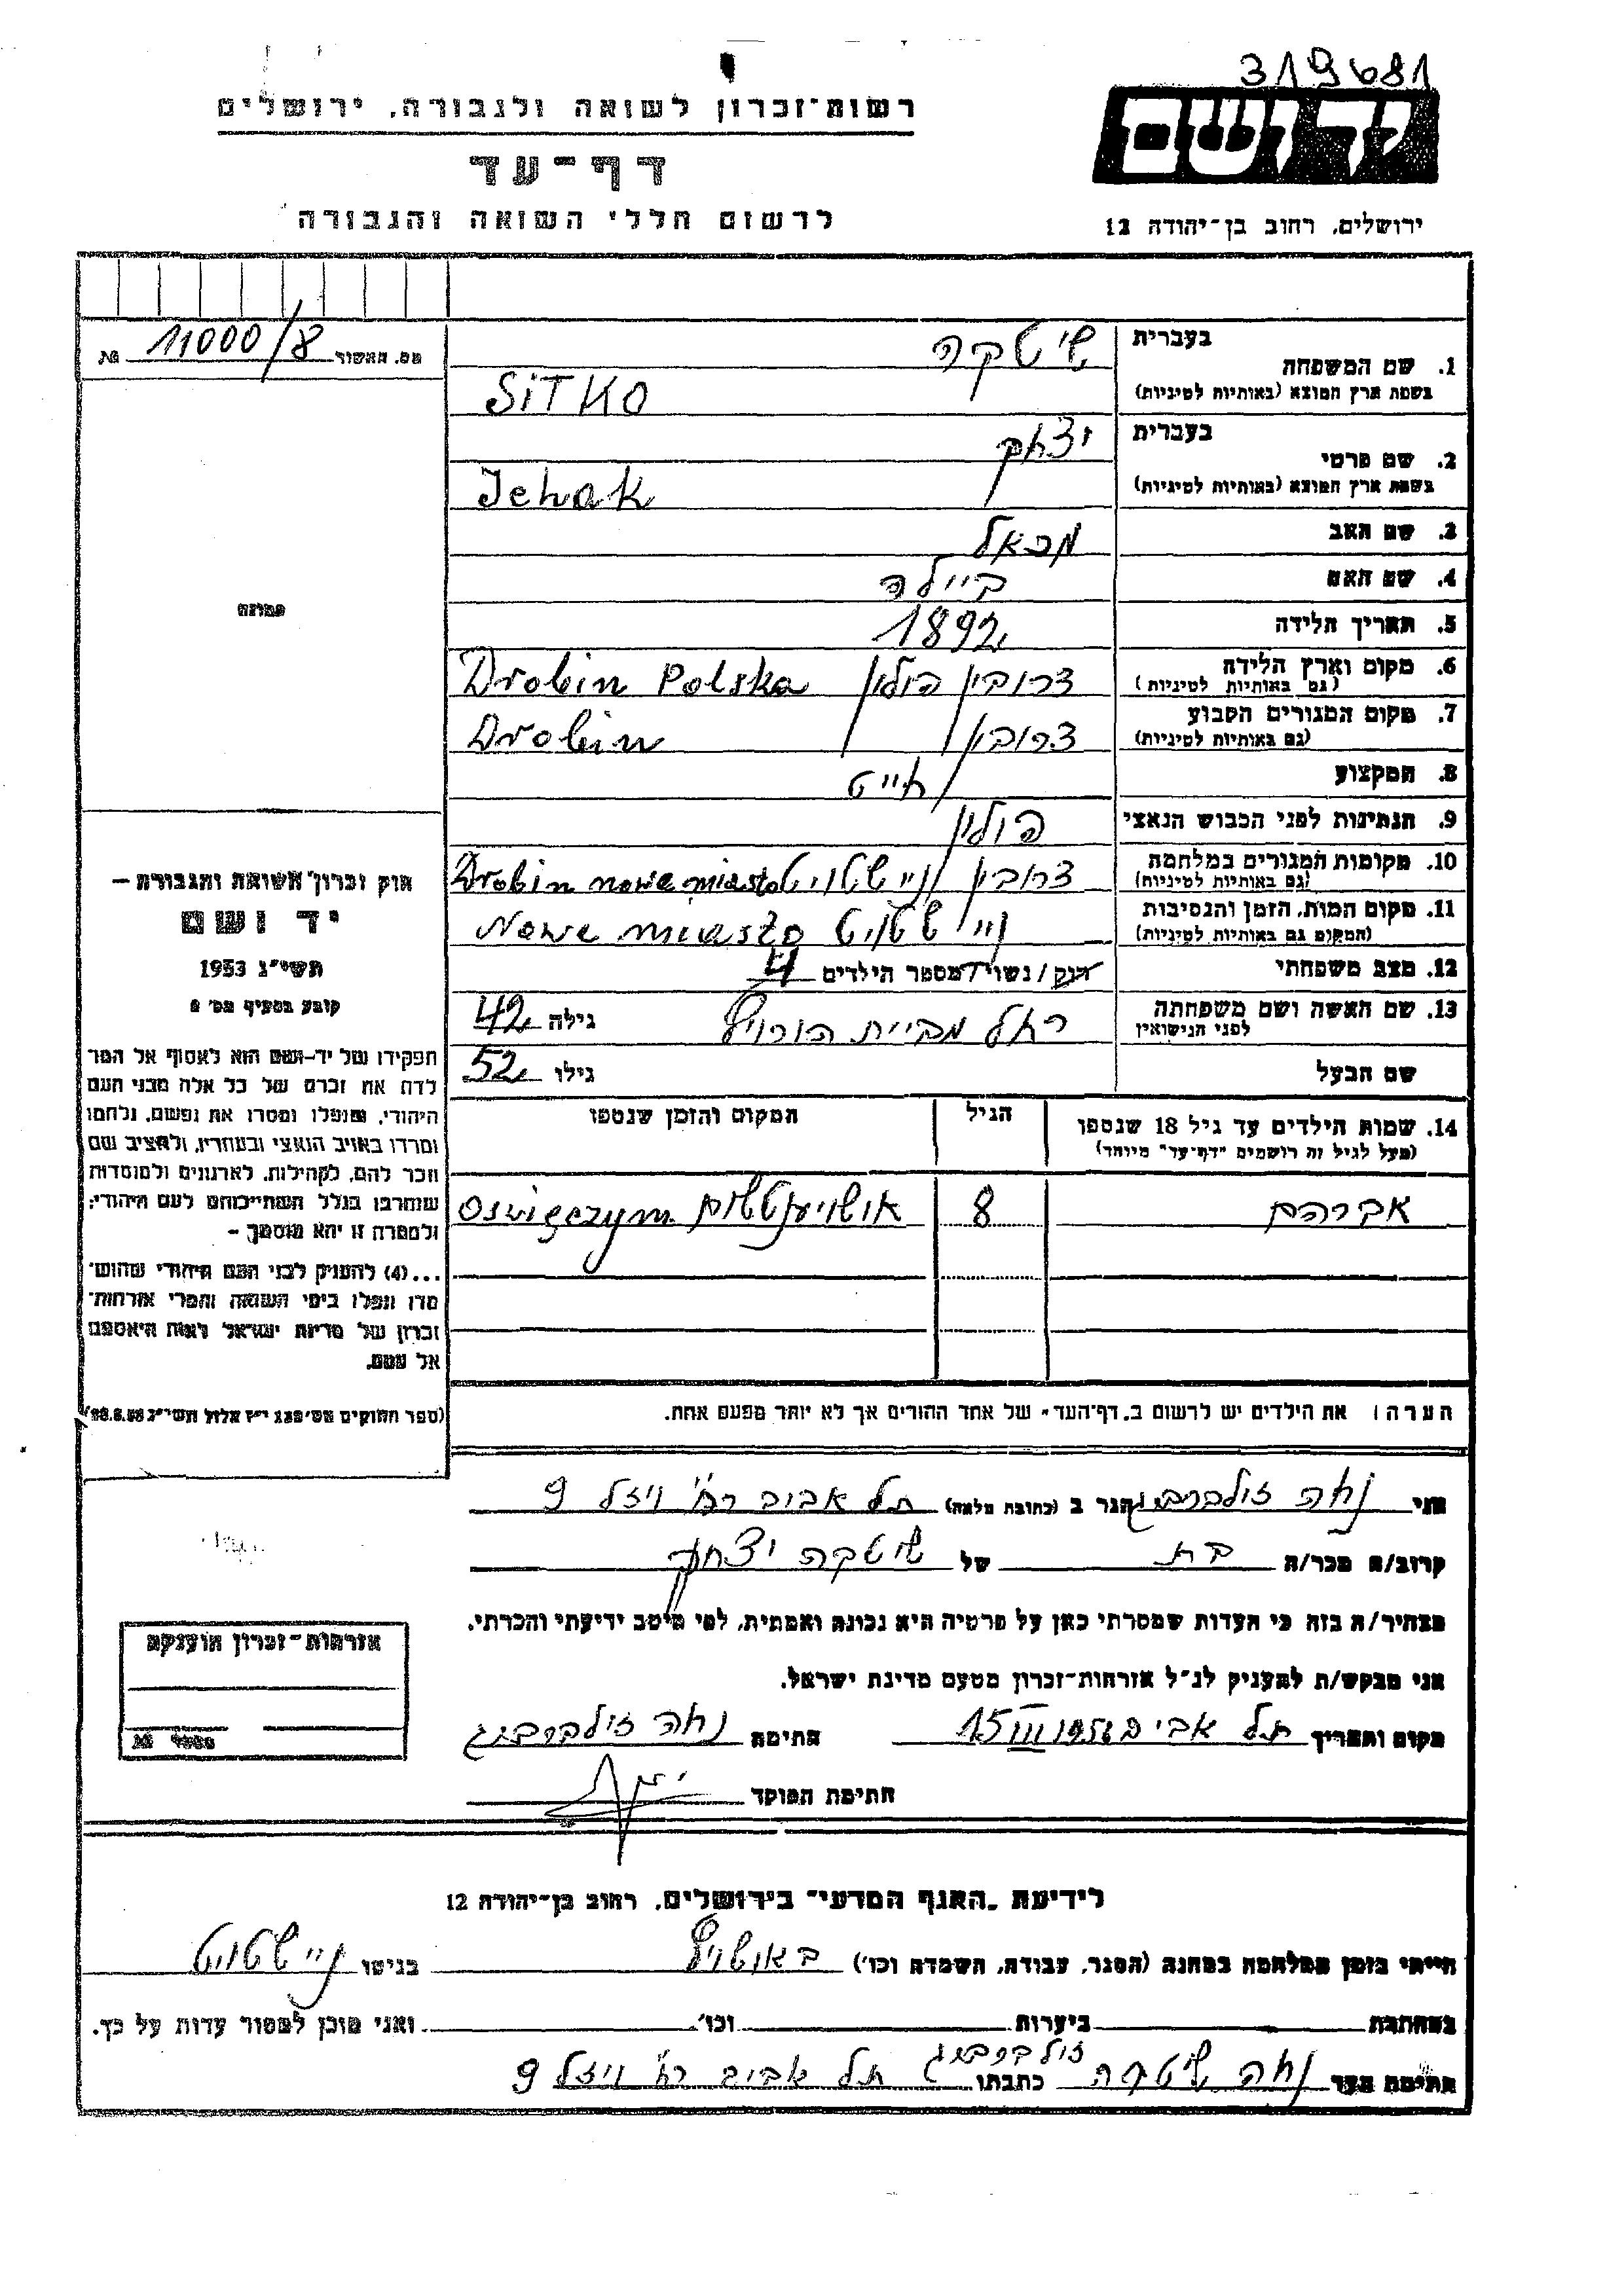 319681
יד ושם
רשות־זכרון לשואה ולגבורה, ירושלים
דף־עד
לרשום חללי השואה והגבורה
ירושלים, רחוב בן־יהודה 12
מס. האשור 11000/8 №
בעברית שיטקה
1. שם המשפחה
בשפת ארץ המוצא (באותיות לטיניות) SiTKO
בעברית יצחק
2. שם פרטי
בשפת ארץ המוצא (באותיות לטיניות) Jehak
3. שם האב מכאל
4. שם האם ביילה
5. תאריך הלידה 1892
6. מקום וארץ הלידה דרובין פולין Drobin Polska
(גם באותיות לטיניות)
7. מקום המגורים הקבוע דרובין Drobin
(גם באותיות לטיניות)
8. המקצוע חייט
9. הנתינות לפני הכבוש הנאצי פולין
10. מקומות המגורים במלחמה דרובין ניי שטויט Drobin nowe miasto
(גם באותיות לטיניות)
11. מקום המות, הזמן והנסיבות ניי שטויט Nowe miasto
(המקום גם באותיות לטיניות)
12. מצב משפחתי רוק / נשוי / מספר הילדים 4
13. שם האשה ושם משפחתה רחל מביית הורויץ גילה 42
לפני הנישואין
שם הבעל גילו 52
14. שמות הילדים עד גיל 18 שנספו הגיל המקום והזמן שנספו
(מעל לגיל זה רושמים "דף־עד" מיוחד)
אברהם 8 Oswięczym
הערה: את הילדים יש לרשום ב„דף־העד" של אחד ההורים אך לא יותר מפעם אחת.
תמונה
חוק זכרון השואה והגבורה —
יד ושם
תשי"ג 1953
קובע בסעיף מס' 2
תפקידו של יד־ושם הוא לאסוף אל המו
לדת את זכרם של כל אלה מבני העם
היהודי, שנפלו ומסרו את נפשם, נלחמו
ומרדו באויב הנאצי ובעוזריו, ולהציב שם
וזכר להם, לקהילות, לארגונים ולמוסדות
שנחרבו בגלל השתייכותם לעם היהודי;
ולמטרה זו יהא מוסמך —
...(4) להעניק לבני העם היהודי שהוש־
מדו ונפלו בימי השואה והמרי אזרחות־
זכרון של מדינת ישראל לאות היאספם
אל עמם.
אני נחה זילברברג הגר ב (כתובת מלאה) תל אביב רח' ויזל 9
קרוב/ה מכר/ה בת של שיטקה יצחק
מצהיר/ה בזה כי העדות שמסרתי כאן על פרטיה היא נכונה ואמתית, לפי מיטב ידיעתי והכרתי.
אני מבקש/ת להעניק לנ"ל אזרחות־זכרון מטעם מדינת ישראל.
מקום ותאריך תל אביב 15 III 1956 חתימה נחה זילברברג
חתימת הפוקד
אזרחות־זכרון הוענקה
№
לידיעת „האגף המדעי" בירושלים, רחוב בן־יהודה 12
הייתי בזמן המלחמה במחנה (הסגר, עבודה, השמדה וכו') באושויץ בגיטו ניי שטויט
במחתרת ביערות וכו' ואני מוכן למסור עדות על כך.
חתימת העד נחה שיטקה זילברברג כתבתו תל אביב רח' ויזל 9